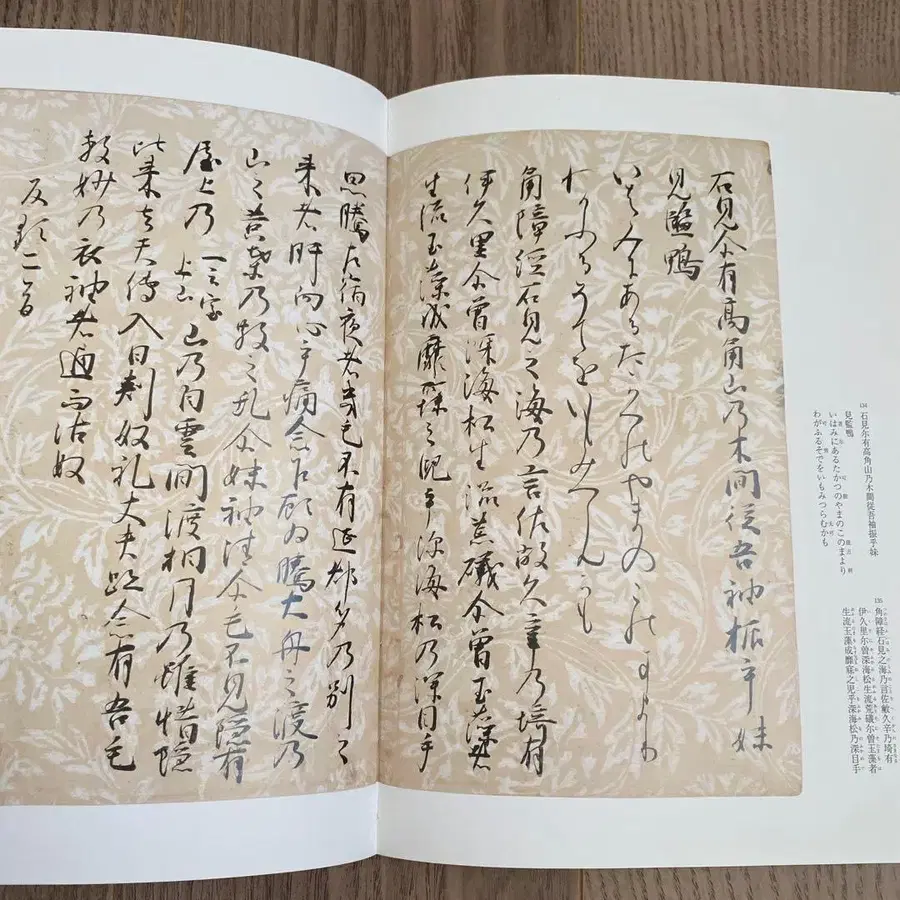 134 石見尓有高角山乃木間従吾袖振乎妹
見監鴨
いはみにあるたかつのやまのこのまより
わがふるそでをいもみつらむかも
135 角障経石見之海乃言佐敝久辛乃埼有
伊久里尓曽深海松生流荒礒尓曽玉藻者
生流玉藻成靡寐之児乎深海松乃深目手
石見尓有高角山乃木間従吾袖振乎妹
見監鴨
いはみにあるたかつのやまのこのまより
わかふるそてをいもみつらんかも
角障経石見之海乃言佐敝久辛乃埼有
伊久里尓曽深海松生流荒礒尓曽玉藻者
生流玉藻成靡寐之児乎深海松乃深目手
思騰左宿夜者幾毛不有延都多乃別之
来者肝向心乎痛念乍顧為騰大舟之渡乃
山之黄葉乃散之乱尓妹袖清尓毛不見隠有
屋上乃 一云 上山 山乃自雲間渡相月乃雖惜隠
比来者天傳入日刺奴礼丈夫跡念有吾毛
敷妙乃衣袖者通而沾奴
反歌二首